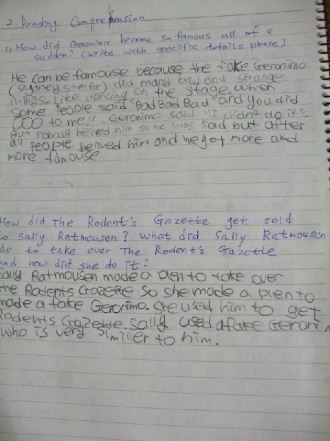 2. Reading Comprehension
1. How did Geronimo became so famous all of a
sudden? (write with specific details phrase)
He can be famouse because the fake Geronimo
did many bad and strange
things like dancing on the stage when
some people said "Bad Bad Bad" and you did
to me!!. Geronimo said "I didn't do it".
But nobody belived him some was said but after
all people belived him and he got more and
more famouse
How did The Rodent's Gazette get sold
to Sally Ratmousen? what did Sally Ratmousen
do to take over The Rodent's Gazette
and how did she do it?
Sally Ratmousen made a plen to take over
the Rodents Gazette so she made a plen to
made a fake Geronimo. She used him to get
Rodents Gazette. Sally used a fake Geronim
who is very similler to him.